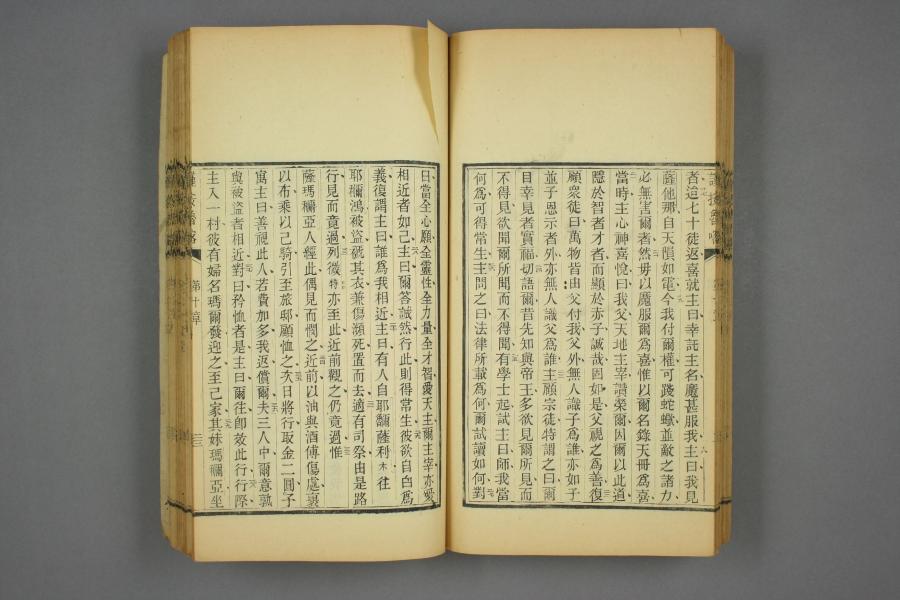 者這七十徒返喜就主曰幸託主名魔甚服我主曰我見
薩他那自天隕如電今我付爾權可踐蛇蠍並敵之諸力
必無害爾者然毋以魔服爾爲喜惟以爾名錄天冊爲喜
當時主心神喜悅曰我父天地主宰讚榮爾因爾以此道
隱於智者才者而顯於赤子誠哉因如是父視之爲善復
顧衆徒曰萬物皆由父付我父外無人識子爲誰亦如子
並子恩示者外亦無人識父爲誰主顧宗徒特謂之曰爾
目幸見者實福切語爾昔先知與帝王多欲見爾所見而
不得見欲聞爾所聞而不得聞有學士起試主曰師我當
何爲可得常生主問之曰法律所載爲何爾試讀如何對
曰當全心願全靈性全力量全才智愛天主爾主宰亦愛
相近者如己主曰爾答誠然行此則得常生彼欲自白爲
義復謂主曰誰爲我相近主曰有人自耶爾薩利木往
耶爾鴻被盜褫其衣兼傷瀕死置而去適有司祭由是路
行見而竟過列微特亦至此近前觀之仍竟過惟
薩瑪爾亞人經此偶見而憫之近前以油與酒傅傷處裹
以布乘以己騎引至旅邸顧恤之次日將行取金二圓予
寓主曰善視此人若費加多我返償爾夫三人中爾意孰
與被盜者相近對曰矜恤者是主曰爾往卽效此行行際
主入一村彼有婦名瑪爾發迎之至己家其妹瑪爾亞坐
第十章